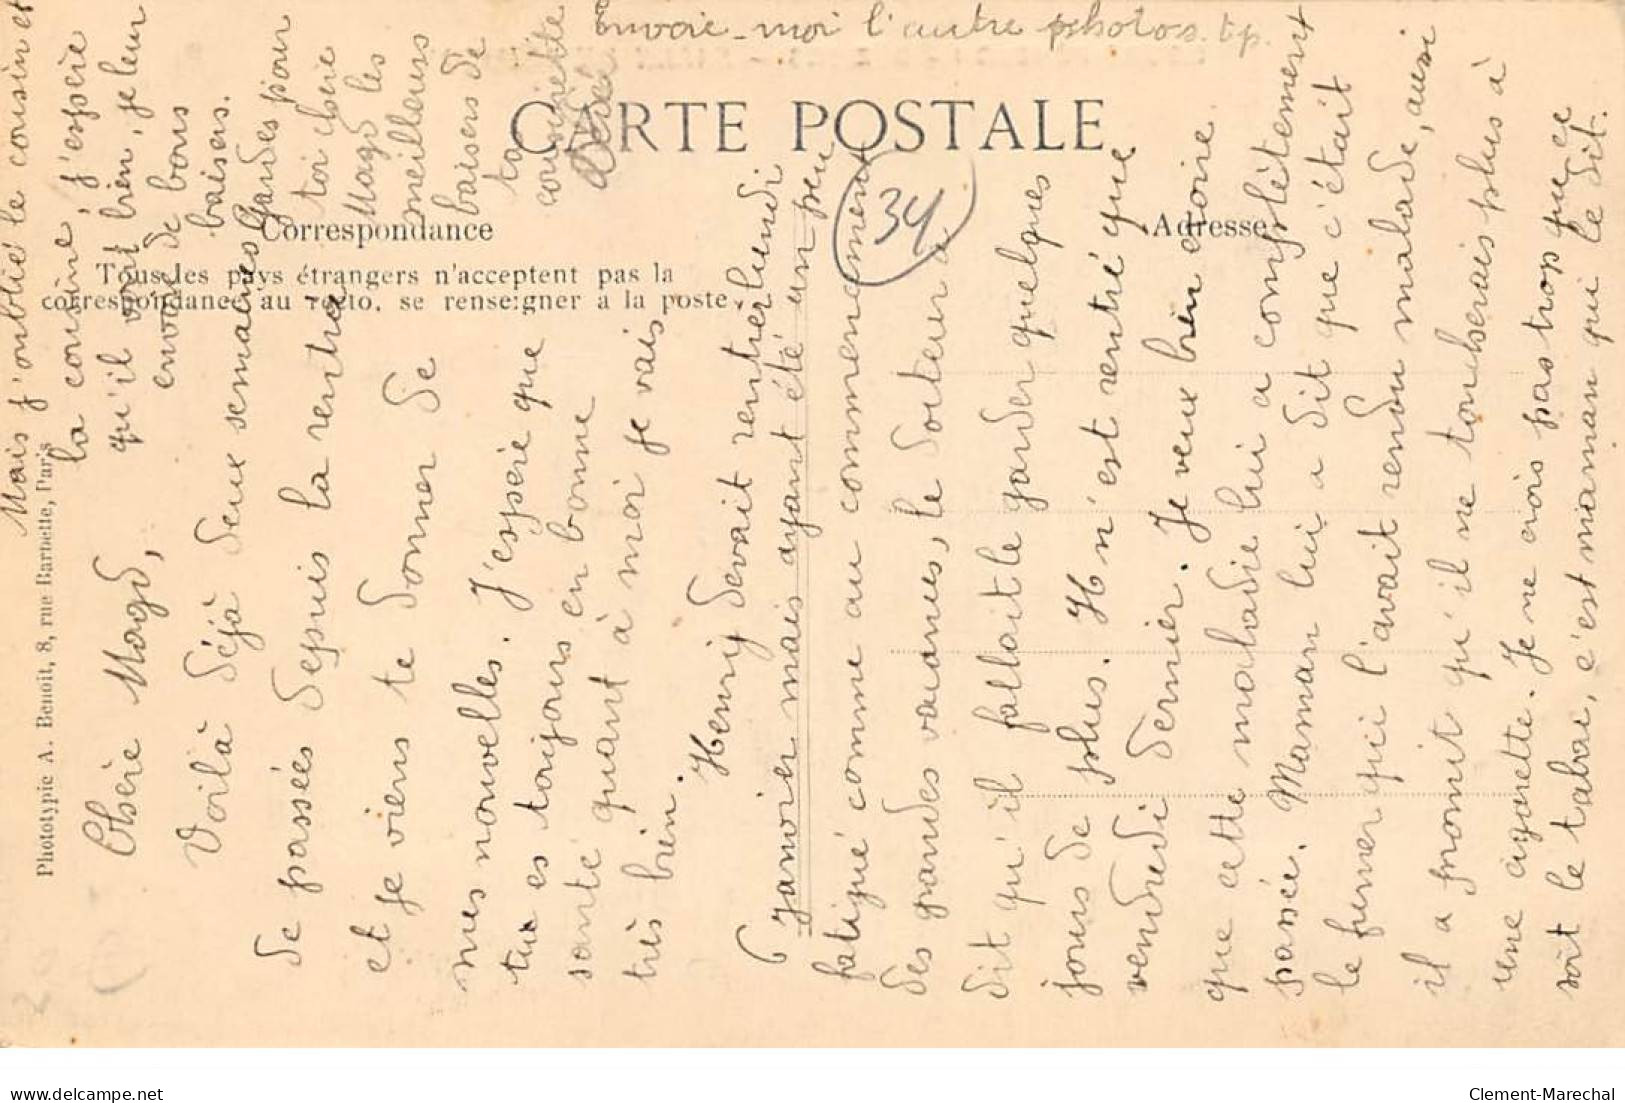 Envoie-moi l'autre photos. tp.
CARTE POSTALE
34
Correspondance
Adresse
Tous les pays étrangers n'acceptent pas la
correspondance au recto, se renseigner a la poste.
Phototypie A. Benoit, 8, rue Barbette, Paris
Chère Magd,
Voilà déjà deux semaines
de passées depuis la rentrée
et je viens te donner de
mes nouvelles. J'espère que
tu es toujours en bonne
santé quant à moi je vais
très bien.
Henry devait rentrer lundi
6 janvier mais ayant été un peu
fatigué comme au commencement
des grandes vacances, le docteur a
dit qu'il fallait le garder quelques
jours de plus. H n'est rentré que
vendredi dernier. Je veux bien croire
que cette maladie lui a complètement
passée. Maman lui a dit que c'était
le fumer qui l'avait rendu malade, aussi
il a promit qu'il ne toucherais plus à
une cigarette. Je ne crois pas trop que ce
soit le tabac, c'est maman qui le dit.
Mais j'oublié le cousin et
la cousine, j'espère
qu'il vont bien, je leur
envoie de bons
baisers.
Gardes pour
toi chère
Magd les
meilleurs
baisers de
ta
cousinette
Dédée
www.delcampe.net
Clement-Marechal